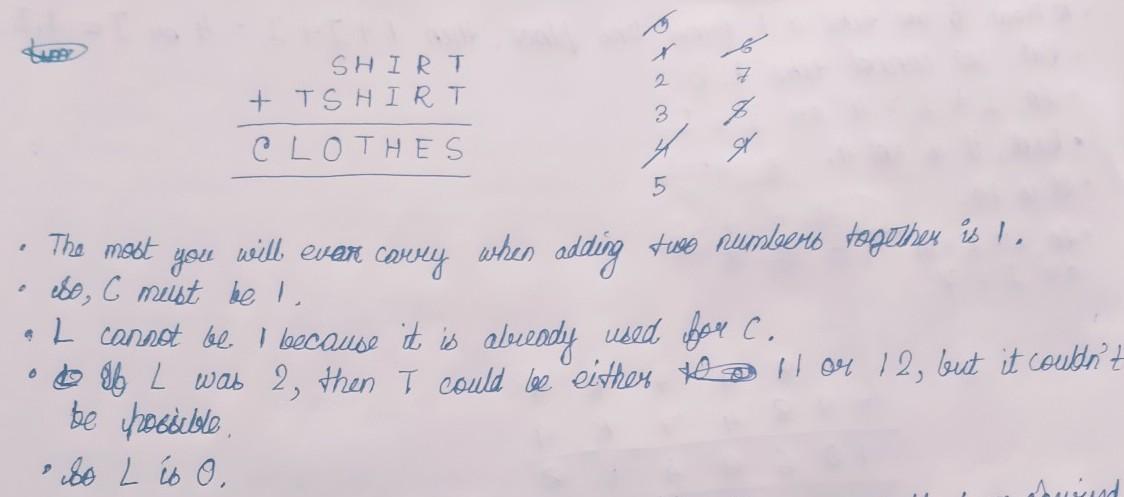 SHIRT
+ TSHIRT
CLOTHES
0
1 6
2 7
3 8
4 9
5
• The most you will ever carry when adding two numbers together is 1.
• So, C must be 1.
• L cannot be 1 because it is already used for C.
• If L was 2, then T could be either 11 or 12, but it couldn't
be possible.
• So L is 0.